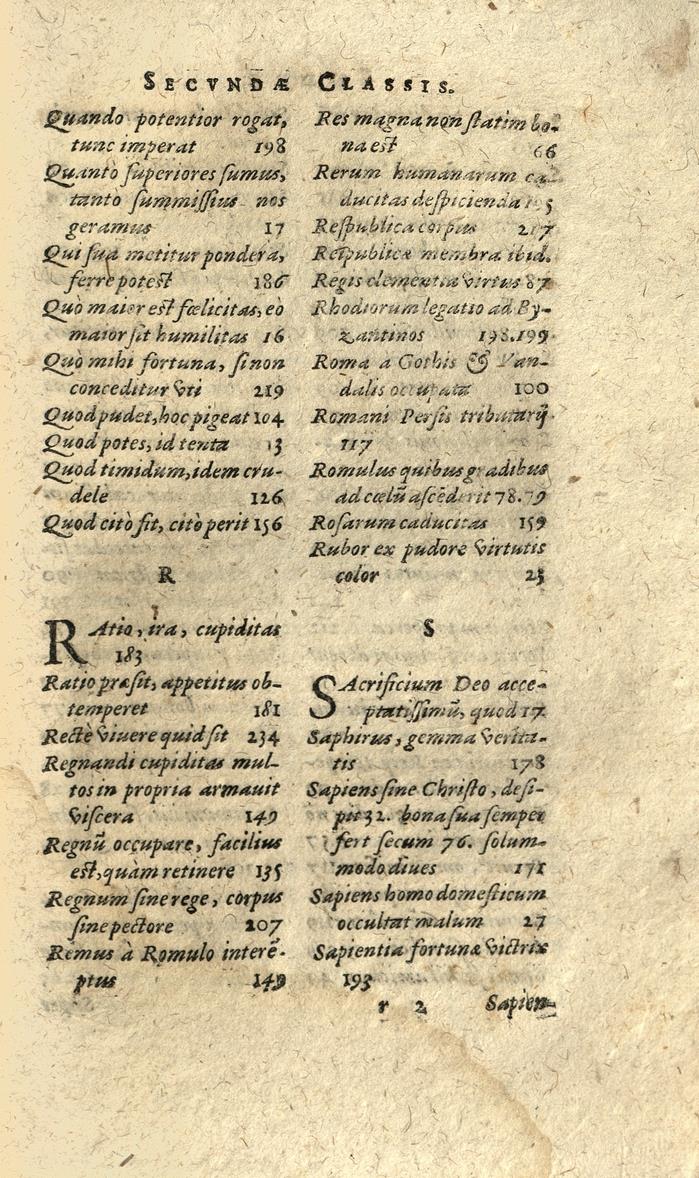 SECVNDÆ CLASSIS.
Quando potentior rogat,
tunc imperat 198
Quantò superiores sumus,
tanto summissius nos
geramus 17
Qui sua metitur pondera,
ferre potest 186
Quò maior est fœlicitas, eò
maior sit humilitas 16
Quò mihi fortuna, si non
conceditur vti 219
Quod pudet, hoc pigeat 104
Quod potes, id tenta 13
Quod timidum, idem cru-
dele 126
Quod citò fit, citò perit 156
R
RAtio, ira, cupiditas
183
Ratio præsit, appetitus ob-
temperet 181
Rectè viuere quid sit 234
Regnandi cupiditas mul-
tos in propria armauit
viscera 149
Regnũ occupare, facilius
est, quàm retinere 135
Regnum sine rege, corpus
sine pectore 207
Remus à Romulo interẽ-
ptus 149
Res magna non statim bo-
na est 66
Rerum humanarum ca-
ducitas despicienda
Respublica corpus 217
Reipublicæ membra ibid.
Regis clementia virtus 87
Rhodiorum legatio ad By-
zantinos 198.199
Roma a Gothis & Van-
dalis occupata 100
Romani Persis tributarij
117
Romulus quibus gradibus
ad cœlũ ascẽderit 78.79
Rosarum caducitas 159
Rubor ex pudore virtutis
color 23
S
SAcrificium Deo acce-
ptatissimũ, quod 17
Saphirus, gemma verita-
tis 178
Sapiens sine Christo, desi-
pit 32. bona sua semper
fert secum 76. solum-
modo diues 171
Sapiens homo domesticum
occultat malum 27
Sapientia fortunæ victrix
193
r 2 Sapien-